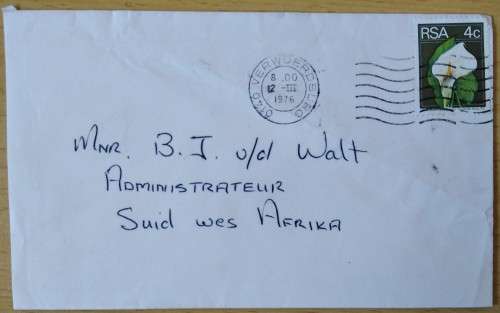 RSA 4c
0140 VERWOERDBURG
8.00
12 -III
1976
MNR. B.J. v/d Walt
ADMINISTRATEUR
Suid wes AFRIKA